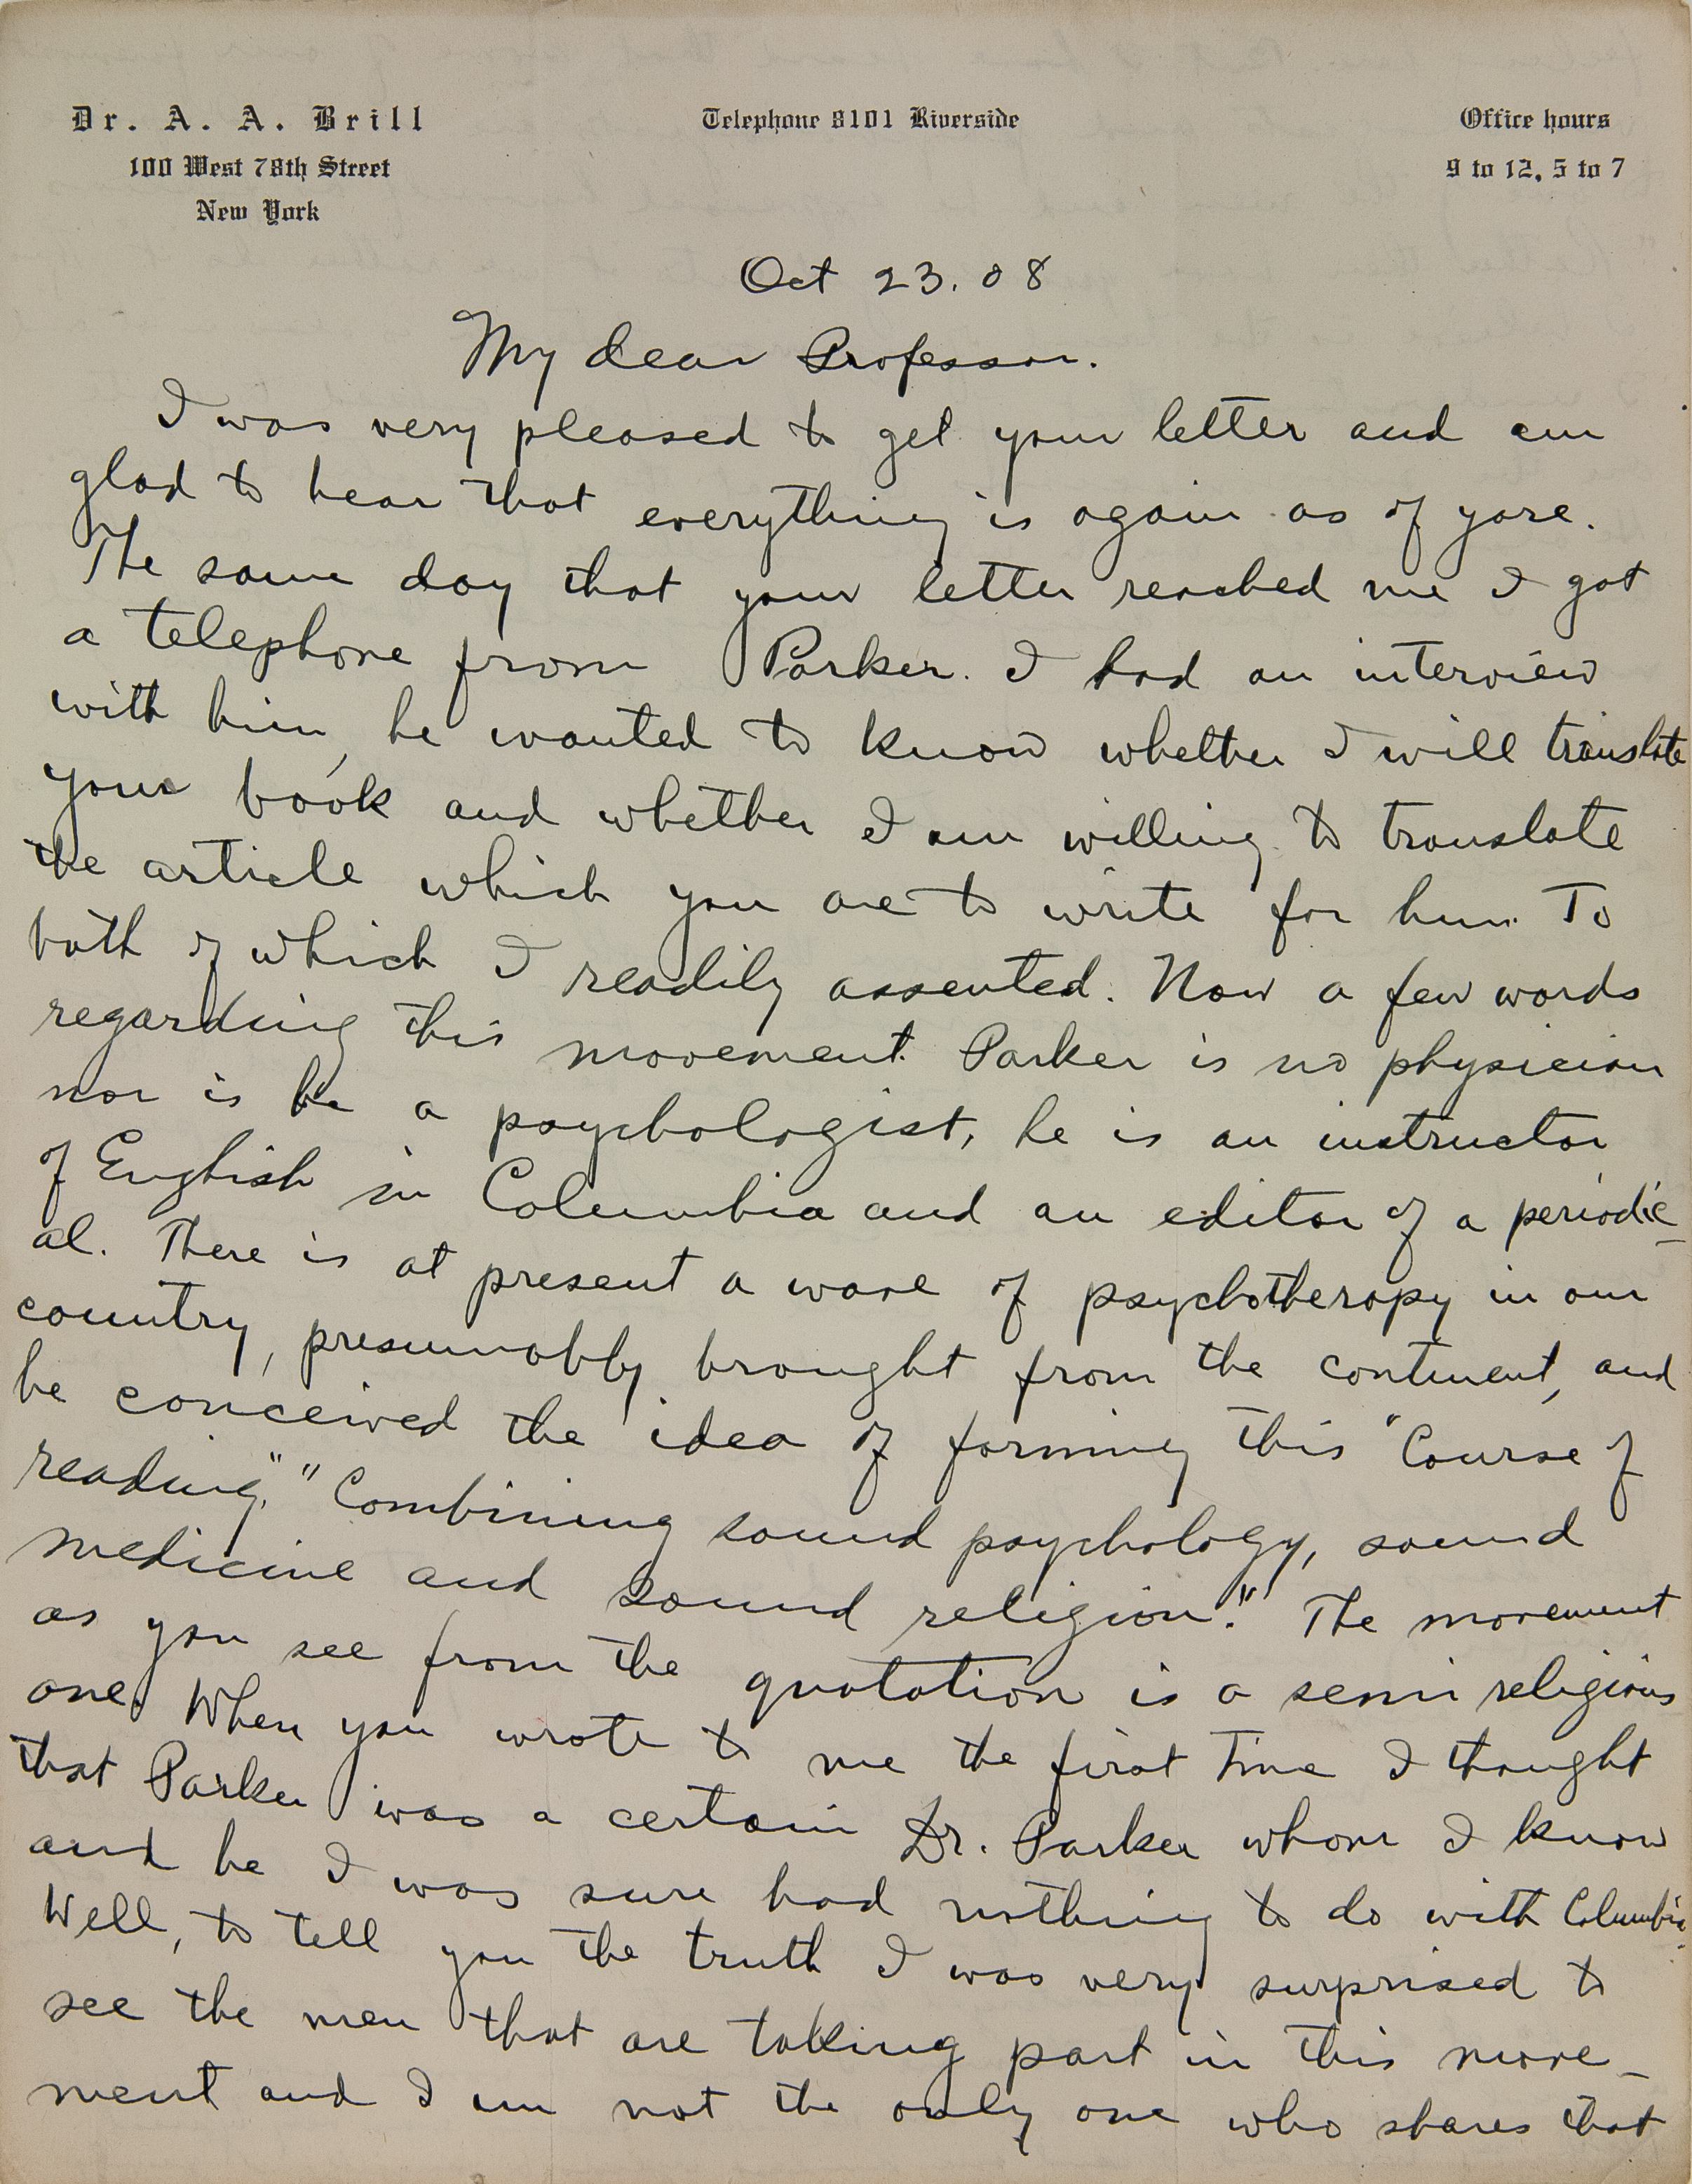 Dr. A. A. Brill
100 West 78th Street
New York
Telephone 8101 Riverside
Office hours
9 to 12, 5 to 7
Oct 23. 08
My dear Professor.
I was very pleased to get your letter and am
glad to hear that everything is again as of yore.
The same day that your letter reached me I got
a telephone from Parker. I had an interview
with him, he wanted to know whether I will translate
your book and whether I am willing to translate
the article which you are to write for him. To
both of which I readily assented. Now a few words
regarding this movement. Parker is no physician
nor is he a psychologist, he is an instructor
of English in Columbia and an editor of a periodic-
al. There is at present a wave of psychotherapy in our
country, presumably brought from the continent, and
he conceived the idea of forming this "Course of
reading," "Combining sound psychology, sound
medicine and sound religion." The movement
as you see from the quotation is a semi religious
one. When you wrote to me the first time I thought
that Parker was a certain Dr. Parker whom I know
and he I was sure had nothing to do with Columbia.
Well, to tell you the truth I was very surprised to
see the men that are taking part in this move-
ment and I am not the only one who shares that